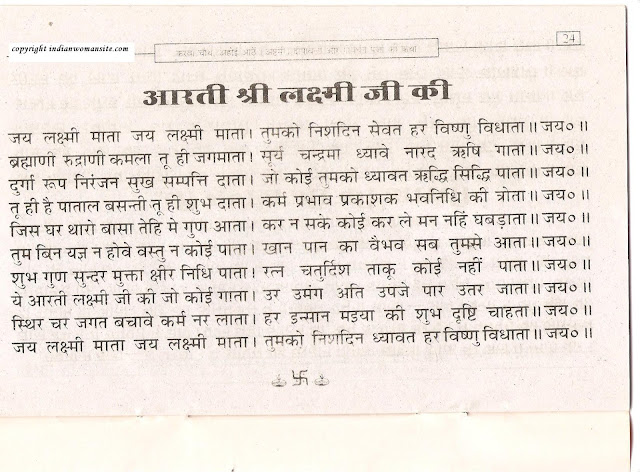 copyright indianwomansite.com
24
आरती श्री लक्ष्मी जी की
जय लक्ष्मी माता जय लक्ष्मी माता। तुमको निशदिन सेवत हर विष्णु विधाता॥ जय०॥
ब्रह्माणी रुद्राणी कमला तू ही जगमाता। सूर्य चन्द्रमा ध्यावे नारद ऋषि गाता॥ जय०॥
दुर्गा रूप निरंजन सुख सम्पत्ति दाता। जो कोई तुमको ध्यावत ऋद्धि सिद्धि पाता॥ जय०॥
तृ ही है पाताल बसन्ती तू ही शुभ दाता। कर्म प्रभाव प्रकाशक भवनिधि की त्रोता॥ जय०॥
जिस घर थारो बासा तेहि मे गुण आता। कर न सके कोई कर ले मन नहिं घबड़ाता॥ जय०॥
तुम बिन यज्ञ न होवे वस्तु न कोई पाता। खान पान का वैभव सब तुमसे आता॥ जय०॥
शुभ गुण सुन्दर मुक्ता क्षीर निधि पाता। रत्न चतुर्दिश ताकृ कोई नहीं पाता॥ जय०॥
ये आरती लक्ष्मी जी की जो कोई गाता। उर उमंग अति उपजे पार उतर जाता॥ जय०॥
स्थिर चर जगत बचावे कर्म नर लाता। हर इन्मान मइया की शुभ दृष्टि चाहता॥ जय०॥
जय लक्ष्मी माता जय लक्ष्मी माता। तुमको निशदिन ध्यावत हर विष्णु विधाता॥ जय०॥